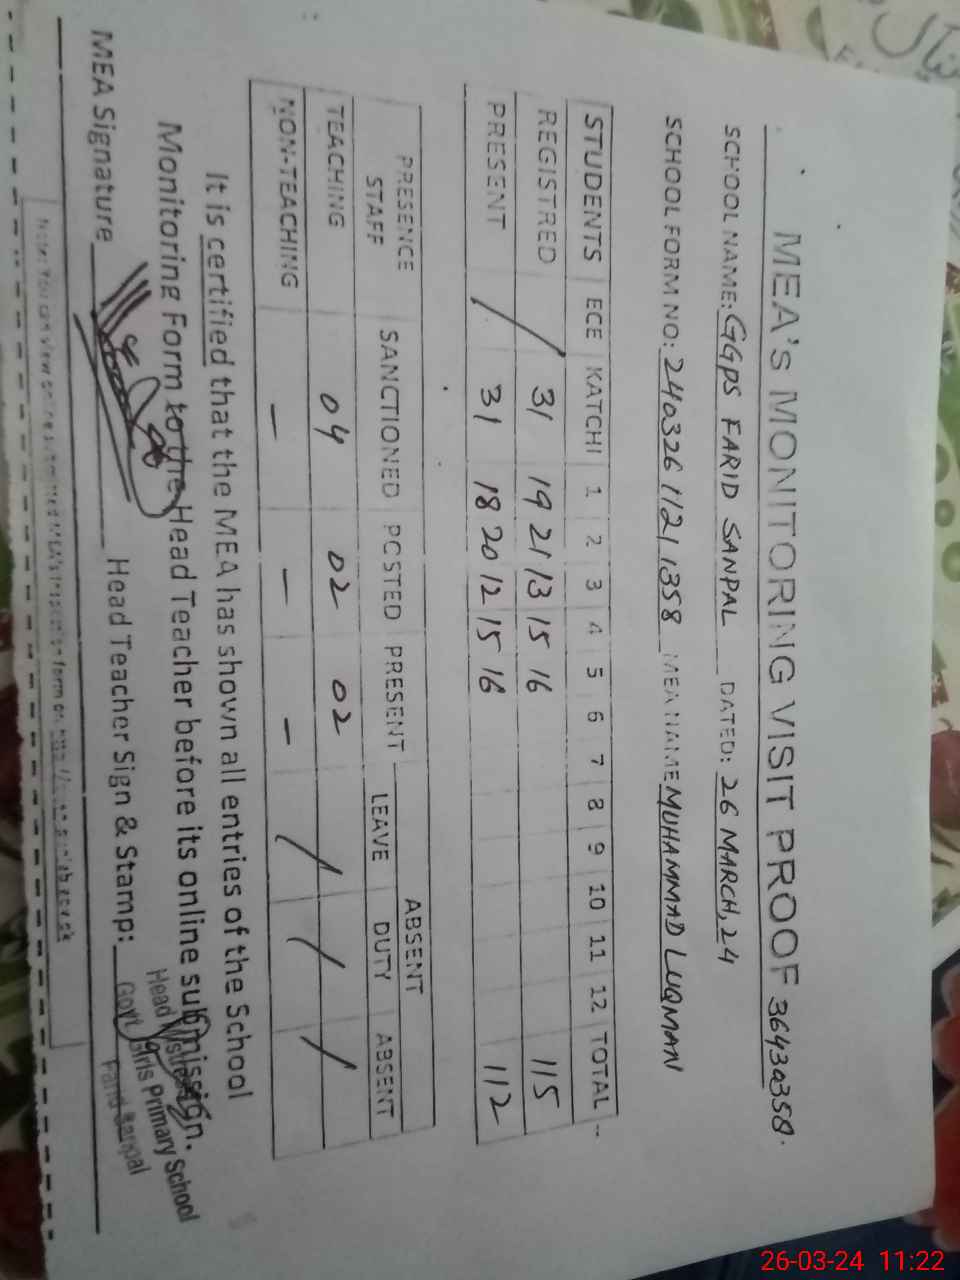 MEA's MONITORING VISIT PROOF 36430358.
SCHOOL NAME: GGPS FARID SANPAL DATED: 26 MARCH, 24
SCHOOL FORM NO: 240326 1121 1358 MEA NAME MUHAMMAD LUQMAN
STUDENTS ECE KATCHI 1 2 3 4 5 6 7 8 9 10 11 12 TOTAL
REGISTRED / 31 19 21 13 15 16 115
PRESENT / 31 18 20 12 15 16 112
PRESENCE STAFF SANCTIONED POSTED PRESENT ABSENT
LEAVE DUTY ABSENT
TEACHING 04 02 02 / / /
NON-TEACHING - - -
It is certified that the MEA has shown all entries of the School
Monitoring Form to the Head Teacher before its online submission.
MEA Signature Head Teacher Sign & Stamp:
Head Mistress
Govt. Girls Primary School
Farid Sanpal
Note: You can view online submitted MEA's
26-03-24 11:22